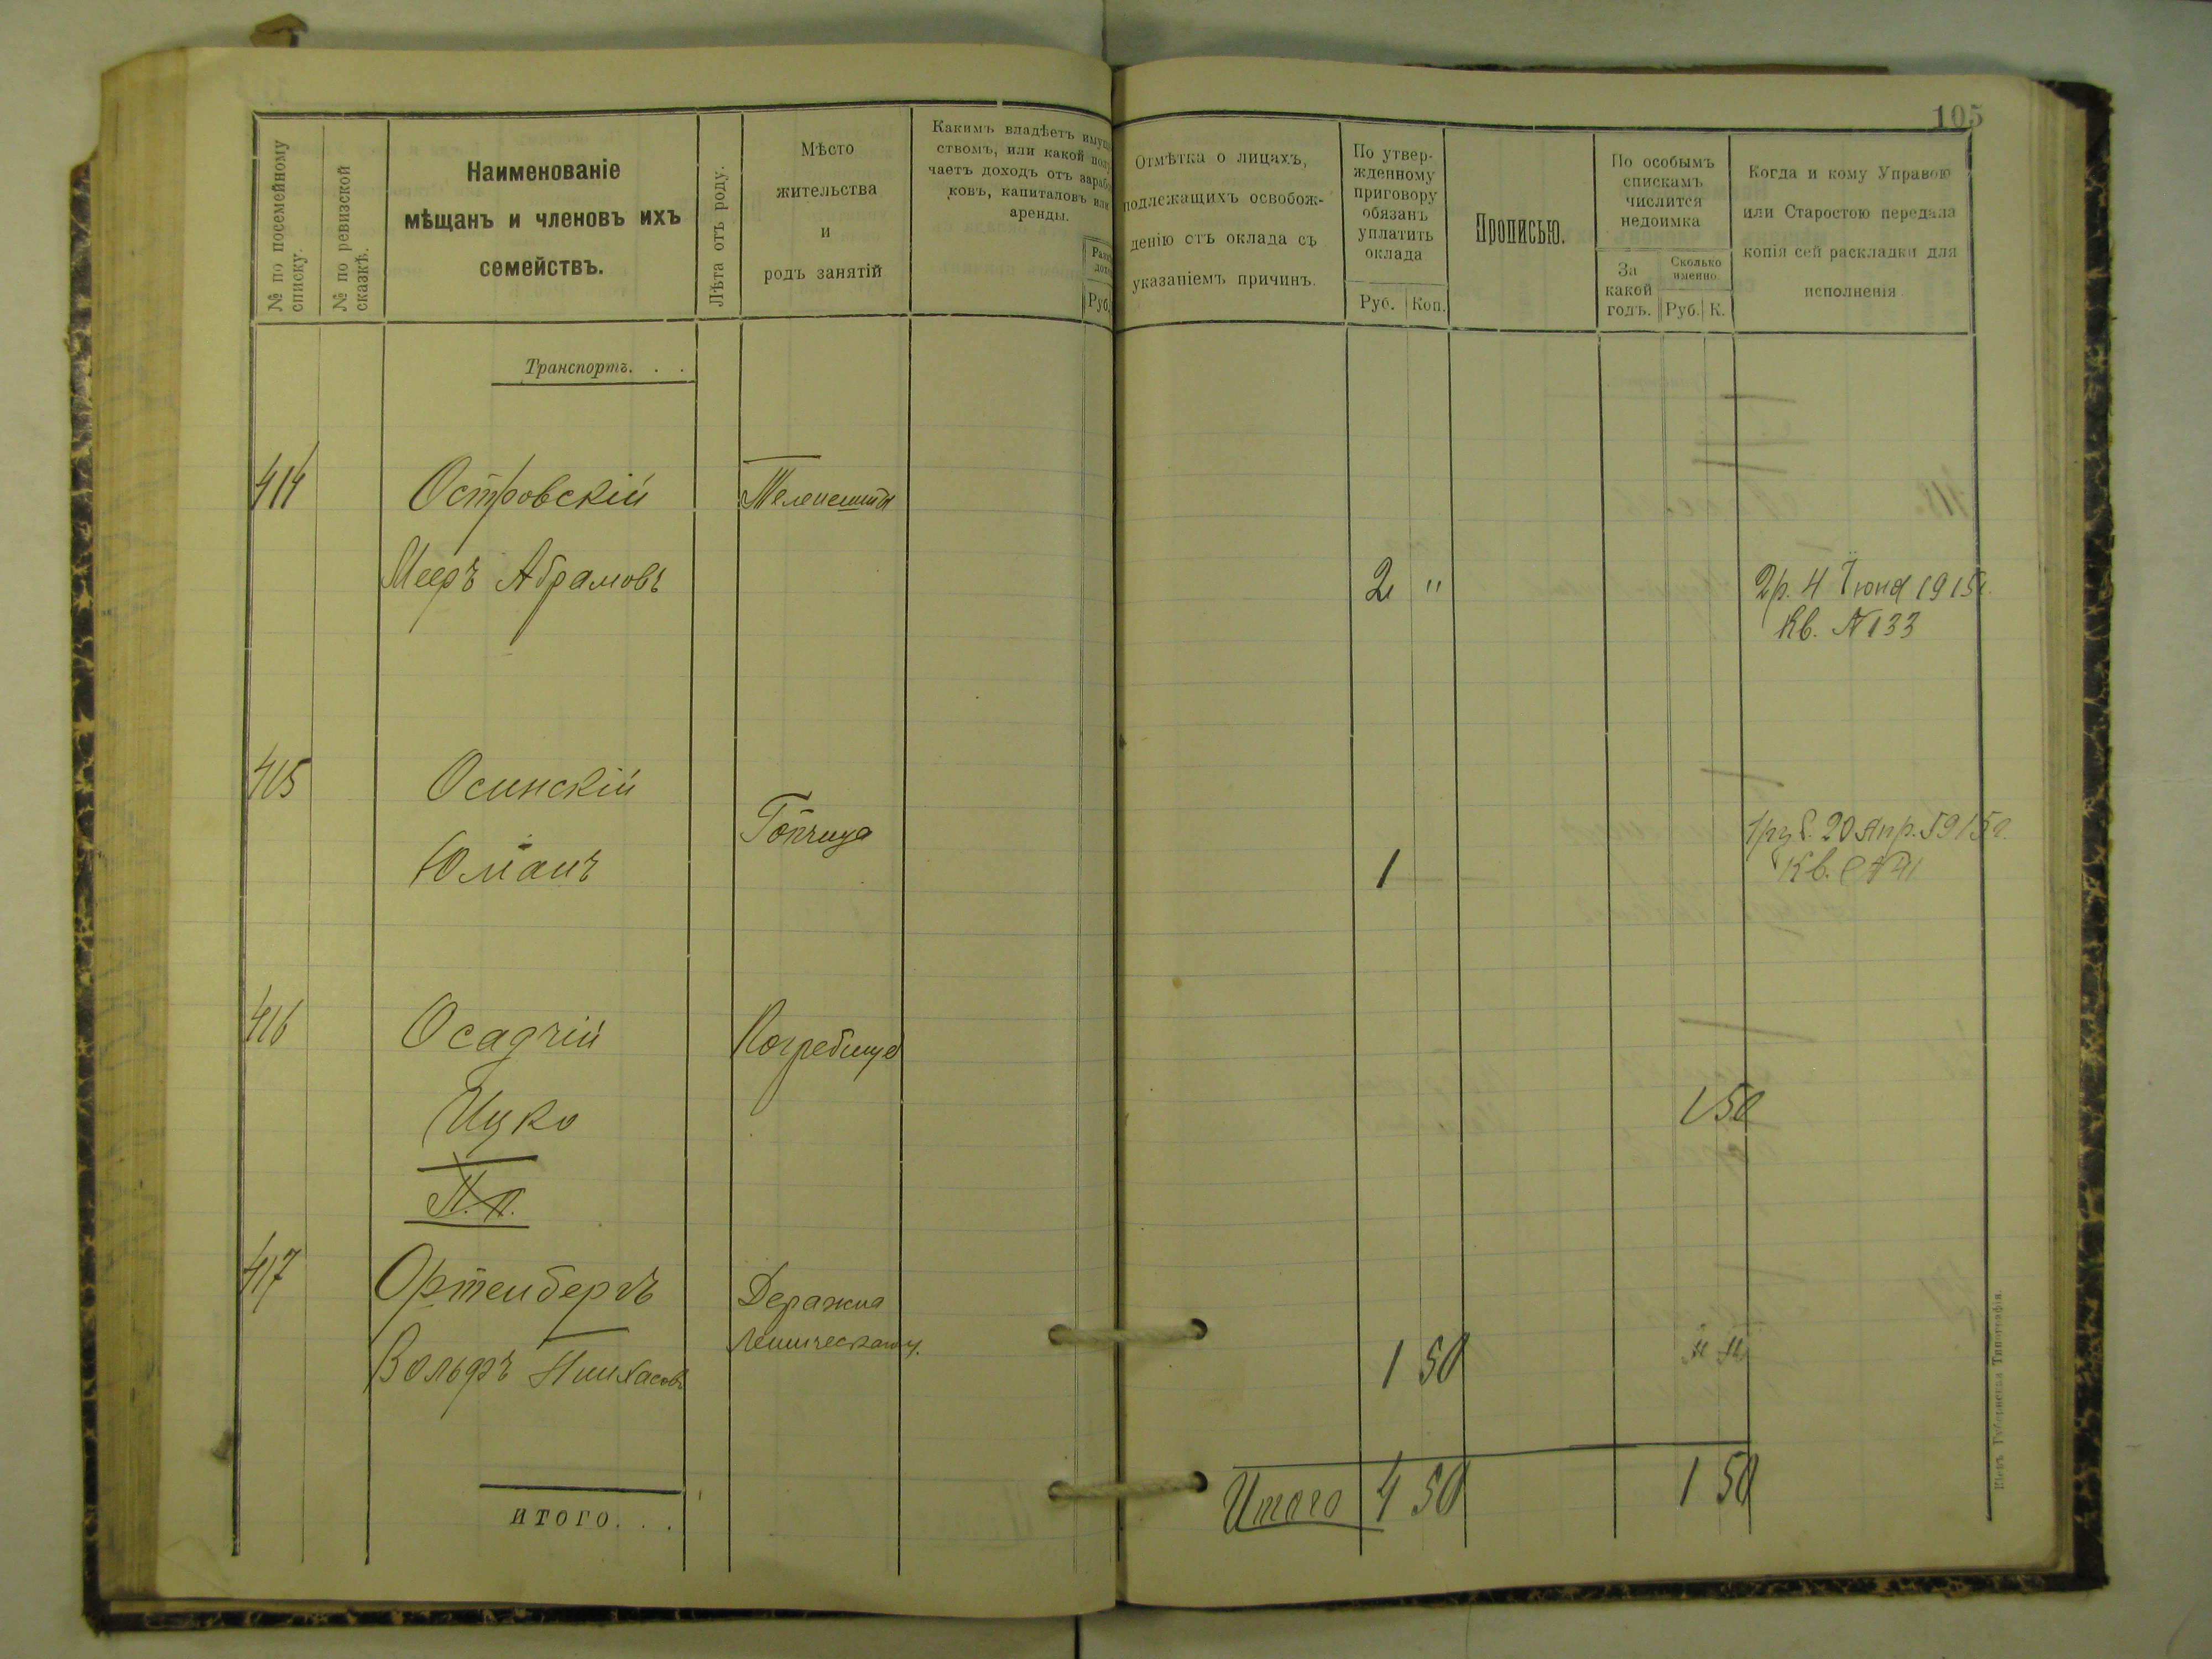 105
№ по посемейному списку.
№ по ревизской сказкѣ.
Наименованіе
мѣщанъ и членовъ ихъ
семействъ.
Лѣта отъ роду.
Мѣсто
жительства
и
родъ занятій
Какимъ владѣетъ имущ
ствомъ, или какой полу
чаетъ доходъ отъ зарабо
ковъ, капиталовъ или
аренды.
Руб.
Отмѣтка о лицахъ,
подлежащихъ освобож-
денію отъ оклада съ
указаніемъ причинъ.
По утвер-
жденному
приговору
обязанъ
уплатить
оклада
Руб. Коп.
Прописью.
По особымъ
спискамъ
числится
недоимка
За
какой
годъ.
Сколько
имеино.
Руб. К.
Когда и кому Управою
или Старостою передала
копія сей раскладки для
исполненія
Транспортъ. . .
414 Островскій
Мееръ Абрамовъ
2 "
2р. 4 Іюня 1915г.
Кв. № 133
415 Осинскій
Топчица
1руб. 20 Апр. 1915г.
Кв. № 41
1
416 Осадчій Погребище
Ицко
1 50
П.п.
417 Ортенбергъ Деражня
Вольфъ Пинхасовъ
1 50
итого. . .
Итого 4 50 1 50
Кіевъ Губернская Типографія.